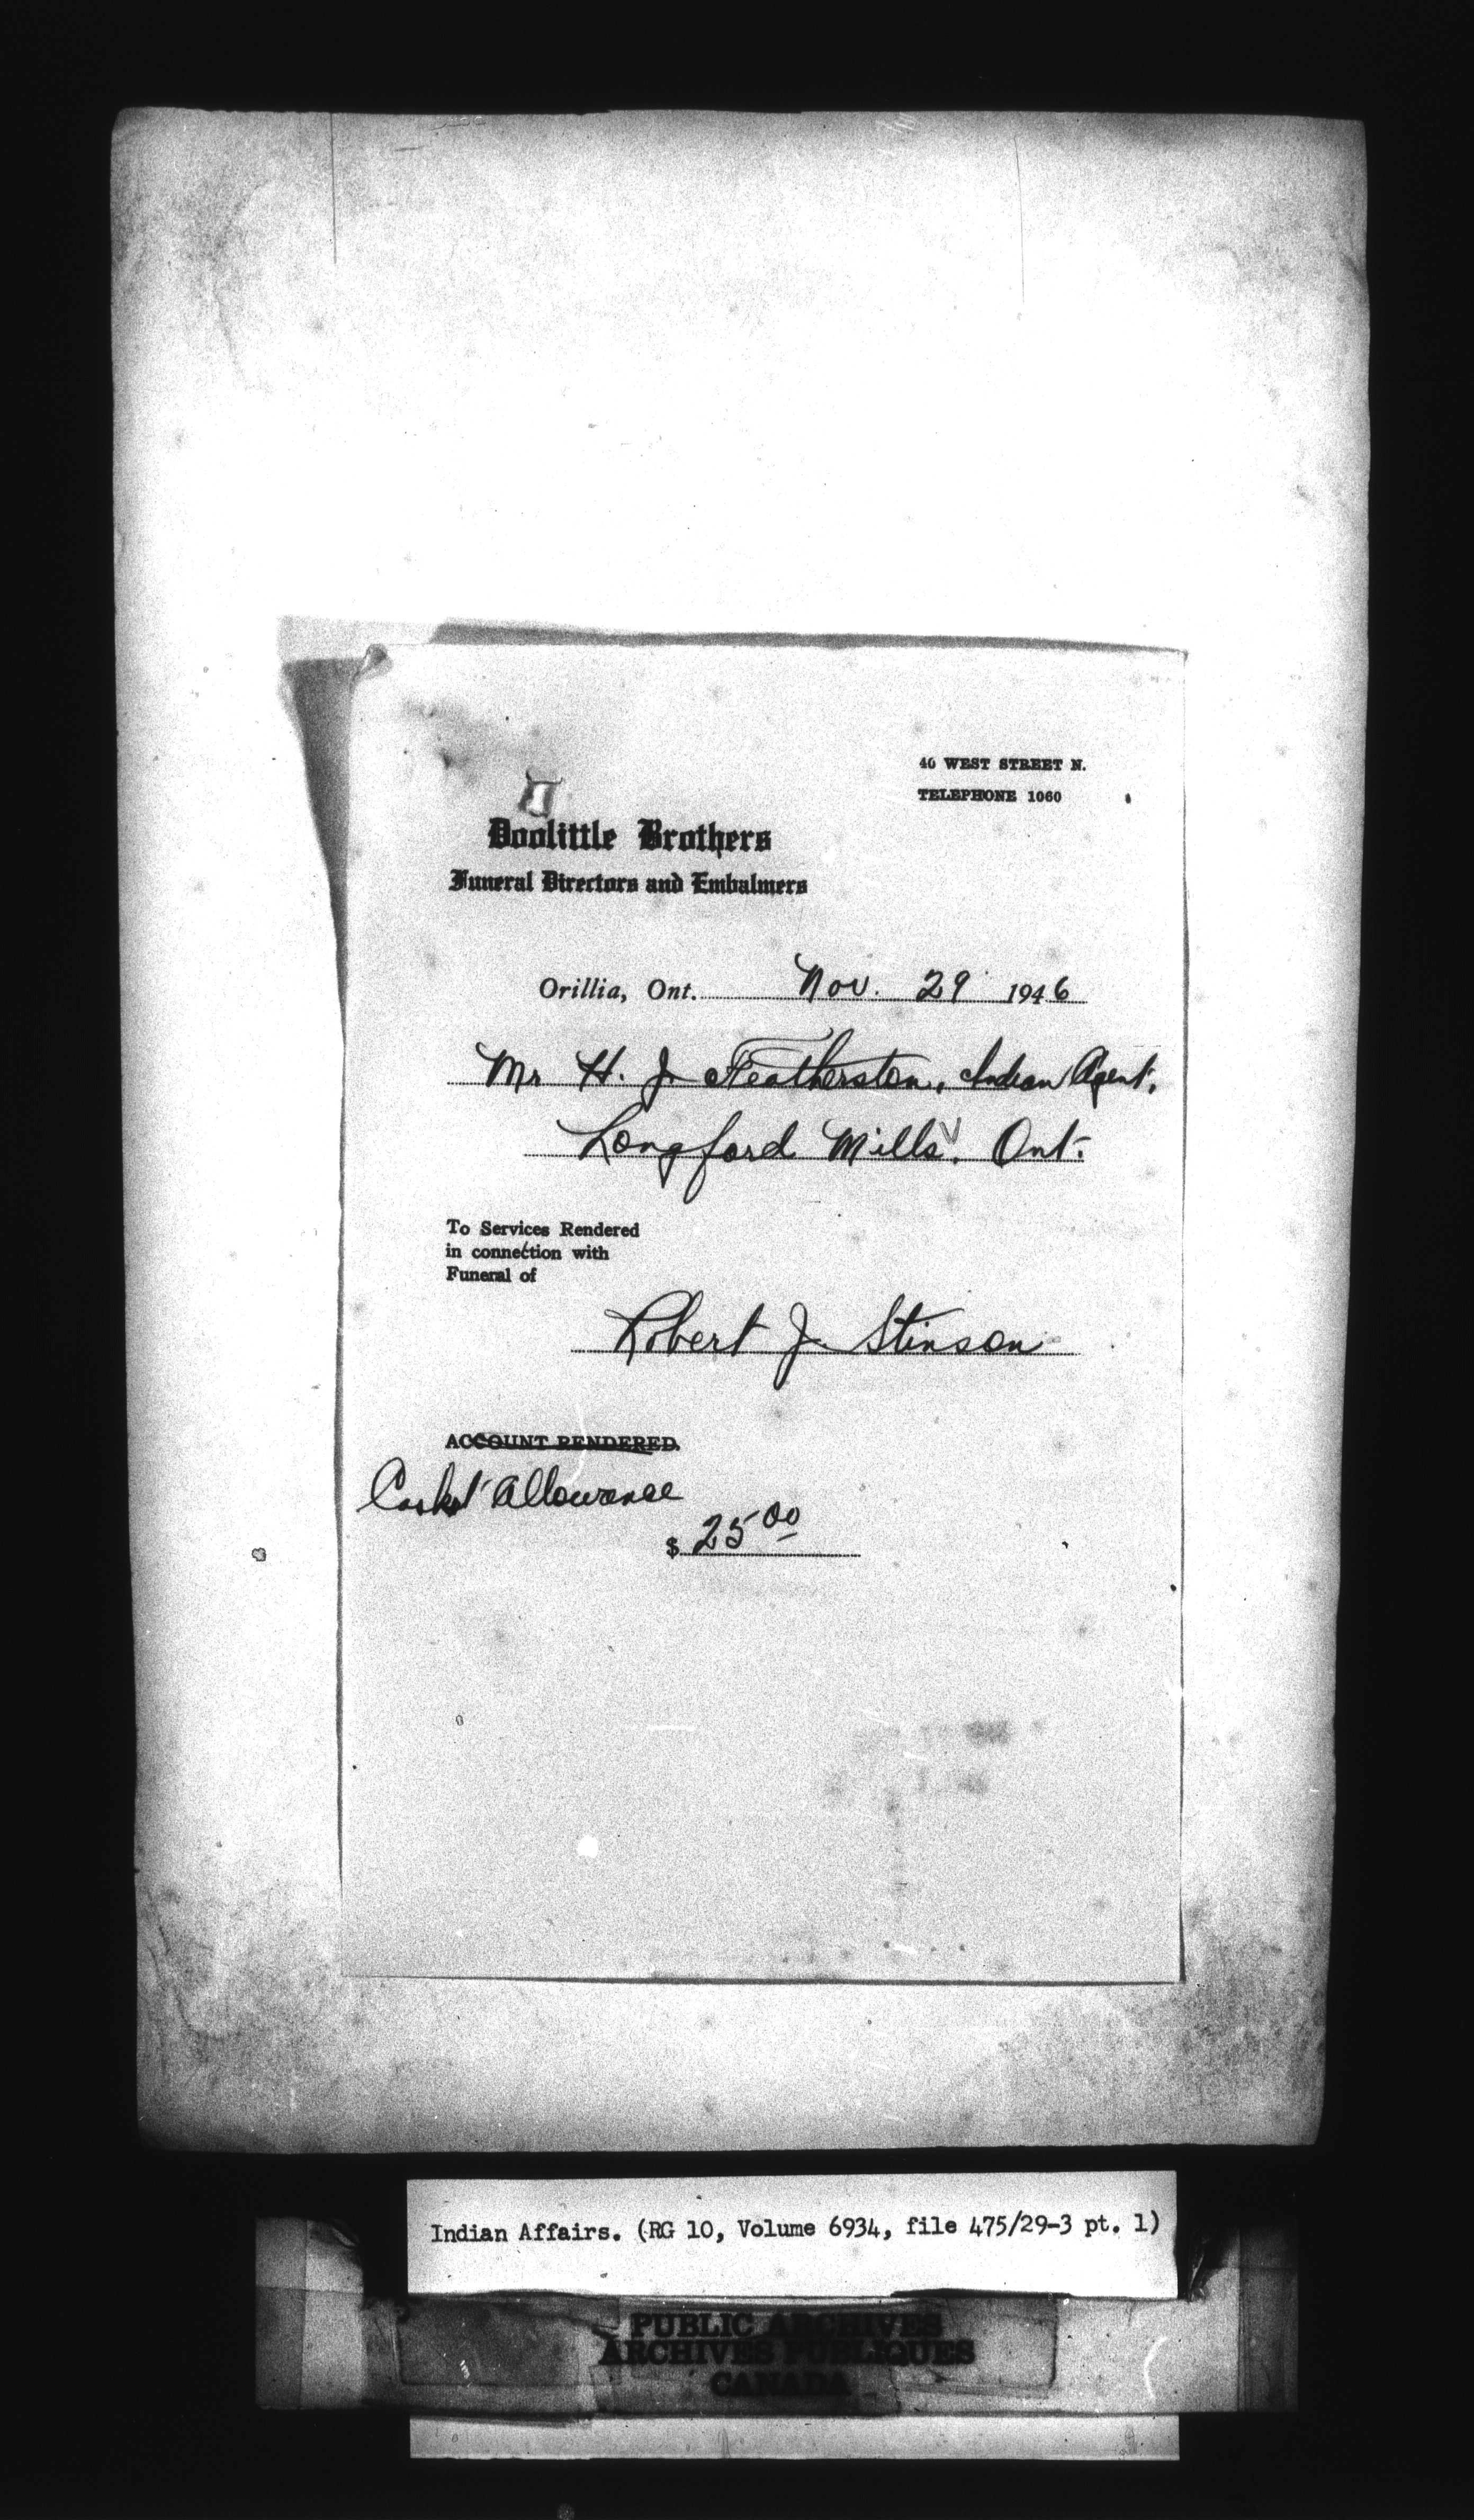 40 WEST STREET N.
TELEPHONE 1060
Doolittle Brothers
Funeral Directors and Embalmers
Orillia, Ont. Nov. 29 1946
Mr H. J. Featherston, Indian Agent,
Longford Mills, Ont.
To Services Rendered
in connection with
Funeral of
Robert J. Stinson
ACCOUNT RENDERED
Casket Allowance
$ 25 00
Indian Affairs. (RG 10, Volume 6934, file 475/29-3 pt. 1)
PUBLIC ARCHIVES
ARCHIVES PUBLIQUES
CANADA